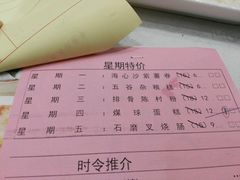 星期特价
星期一：海心沙紫薯卷 6
星期二：五谷杂粮糕 6
星期三：排骨陈村粉 12
星期四：煤球蛋糕 12
星期五：石磨叉烧肠 9
时令推介